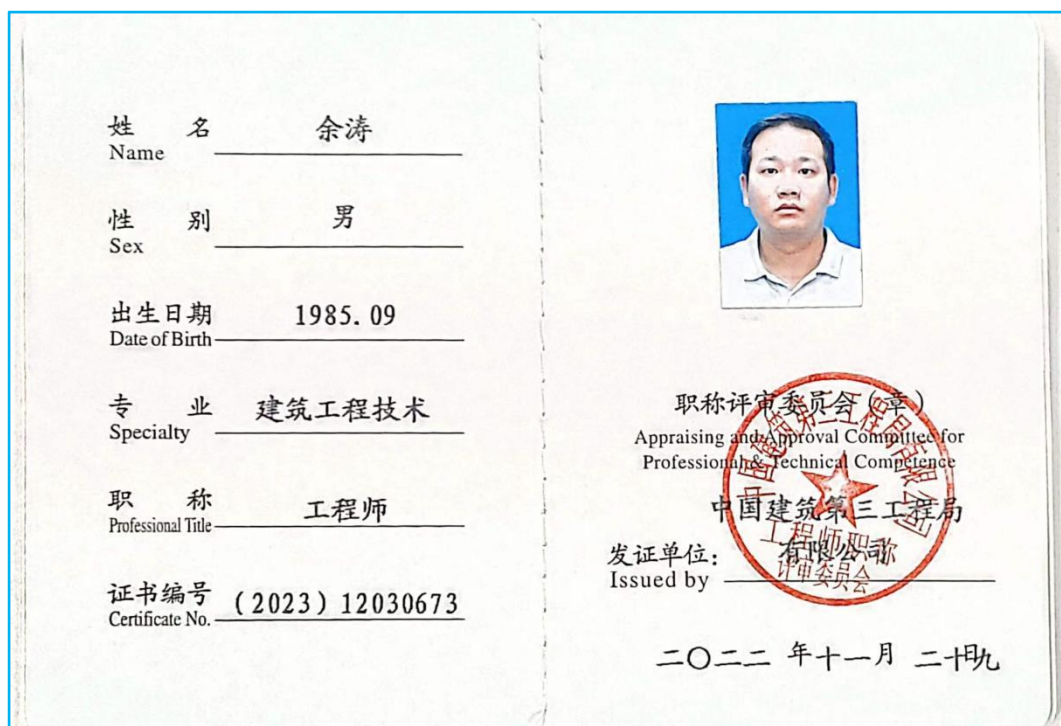 姓 名 余涛
Name
性 别 男
Sex
出生日期 1985.09
Date of Birth
专 业 建筑工程技术
Specialty
职 称 工程师
Professional Title
证书编号 (2023)12030673
Certificate No.
职称评审委员会(章)
Appraising and Approval Committee for
Professional & Technical Competence
中国建筑第三工程局
发证单位: 有限公司
Issued by
二〇二二 年十一月 二十九日
中国建筑第三工程局有限公司
工程师职称
评审委员会